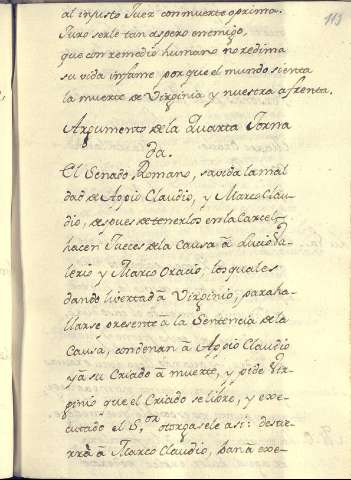 113
al injusto Juez con muerte oprima.
Juro serle tan aspero enemigo,
que con remedio humano no redima
su vida infame, porque el mundo sienta
la muerte de Virginia y nuestra afrenta.
Argumento de la Quarta Jorna
da.
El Senado Romano, savida la mal
dad de Appio Claudio, y Marco Clau-
dio, despues de tenerlos en la Carcel,
hacen Jueces de la Causa â Lucio Va-
lerio y Marco Oracio, los quales
dando libertad â Virginio, para ha-
llarse presente â la Sentencia de la
Causa, condenan â Appio Claudio
yâ su Criado â muerte, y pide Vir-
ginio que el Criado se libre, y exe-
cutado el S.or otorgasele asi: destie-
rra â Marco Claudio, ban â exe-